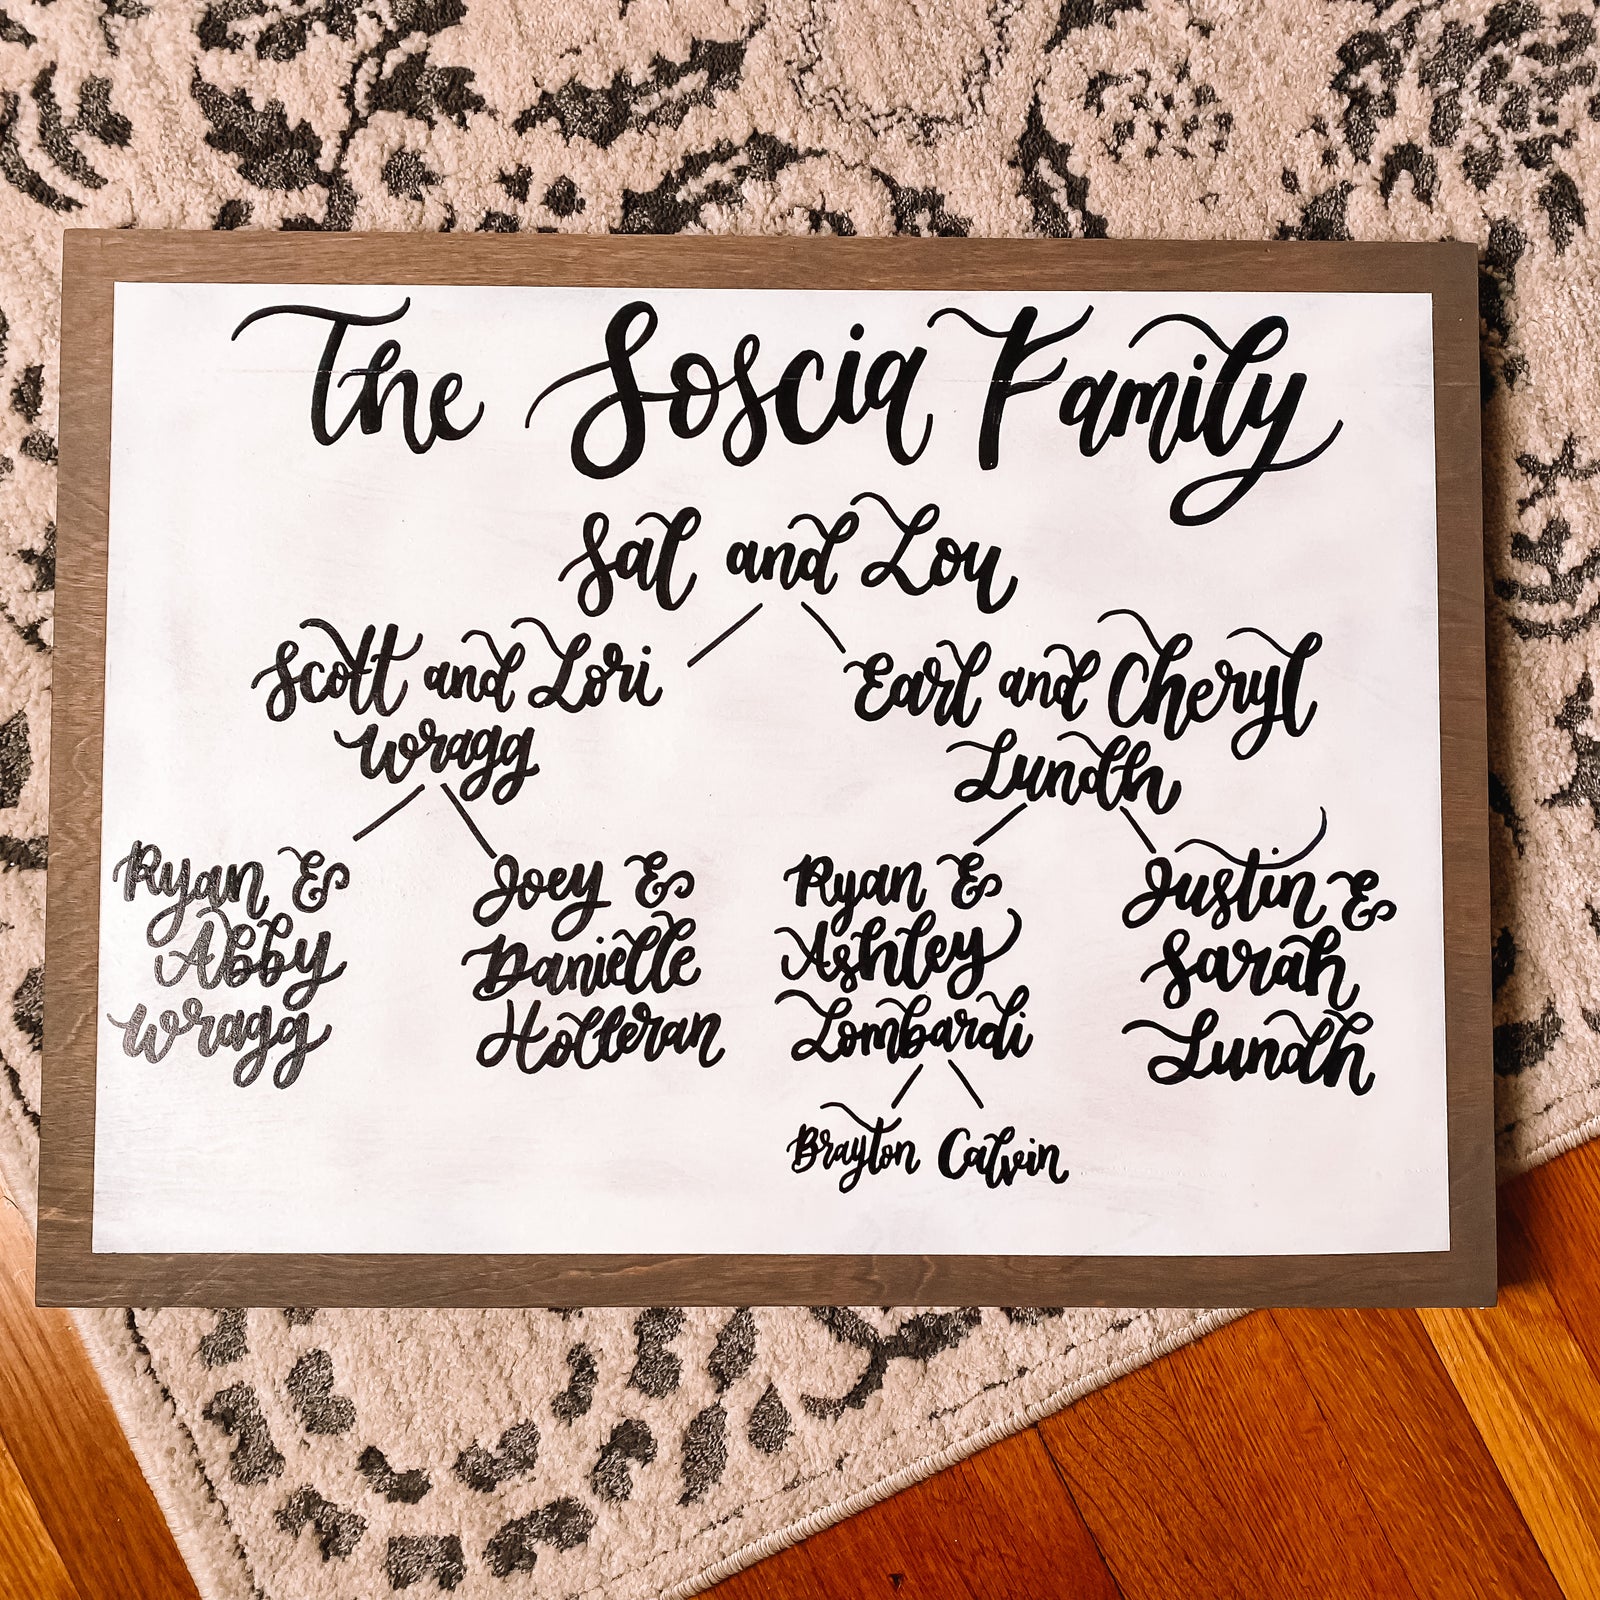 The Soscia Family
Sal and Lou
Scott and Lori
Wragg
Earl and Cheryl
Lundh
Ryan &
Abby
Wragg
Joey &
Danielle
Holleran
Ryan &
Ashley
Lombardi
Justin &
Sarah
Lundh
Brayton Calvin